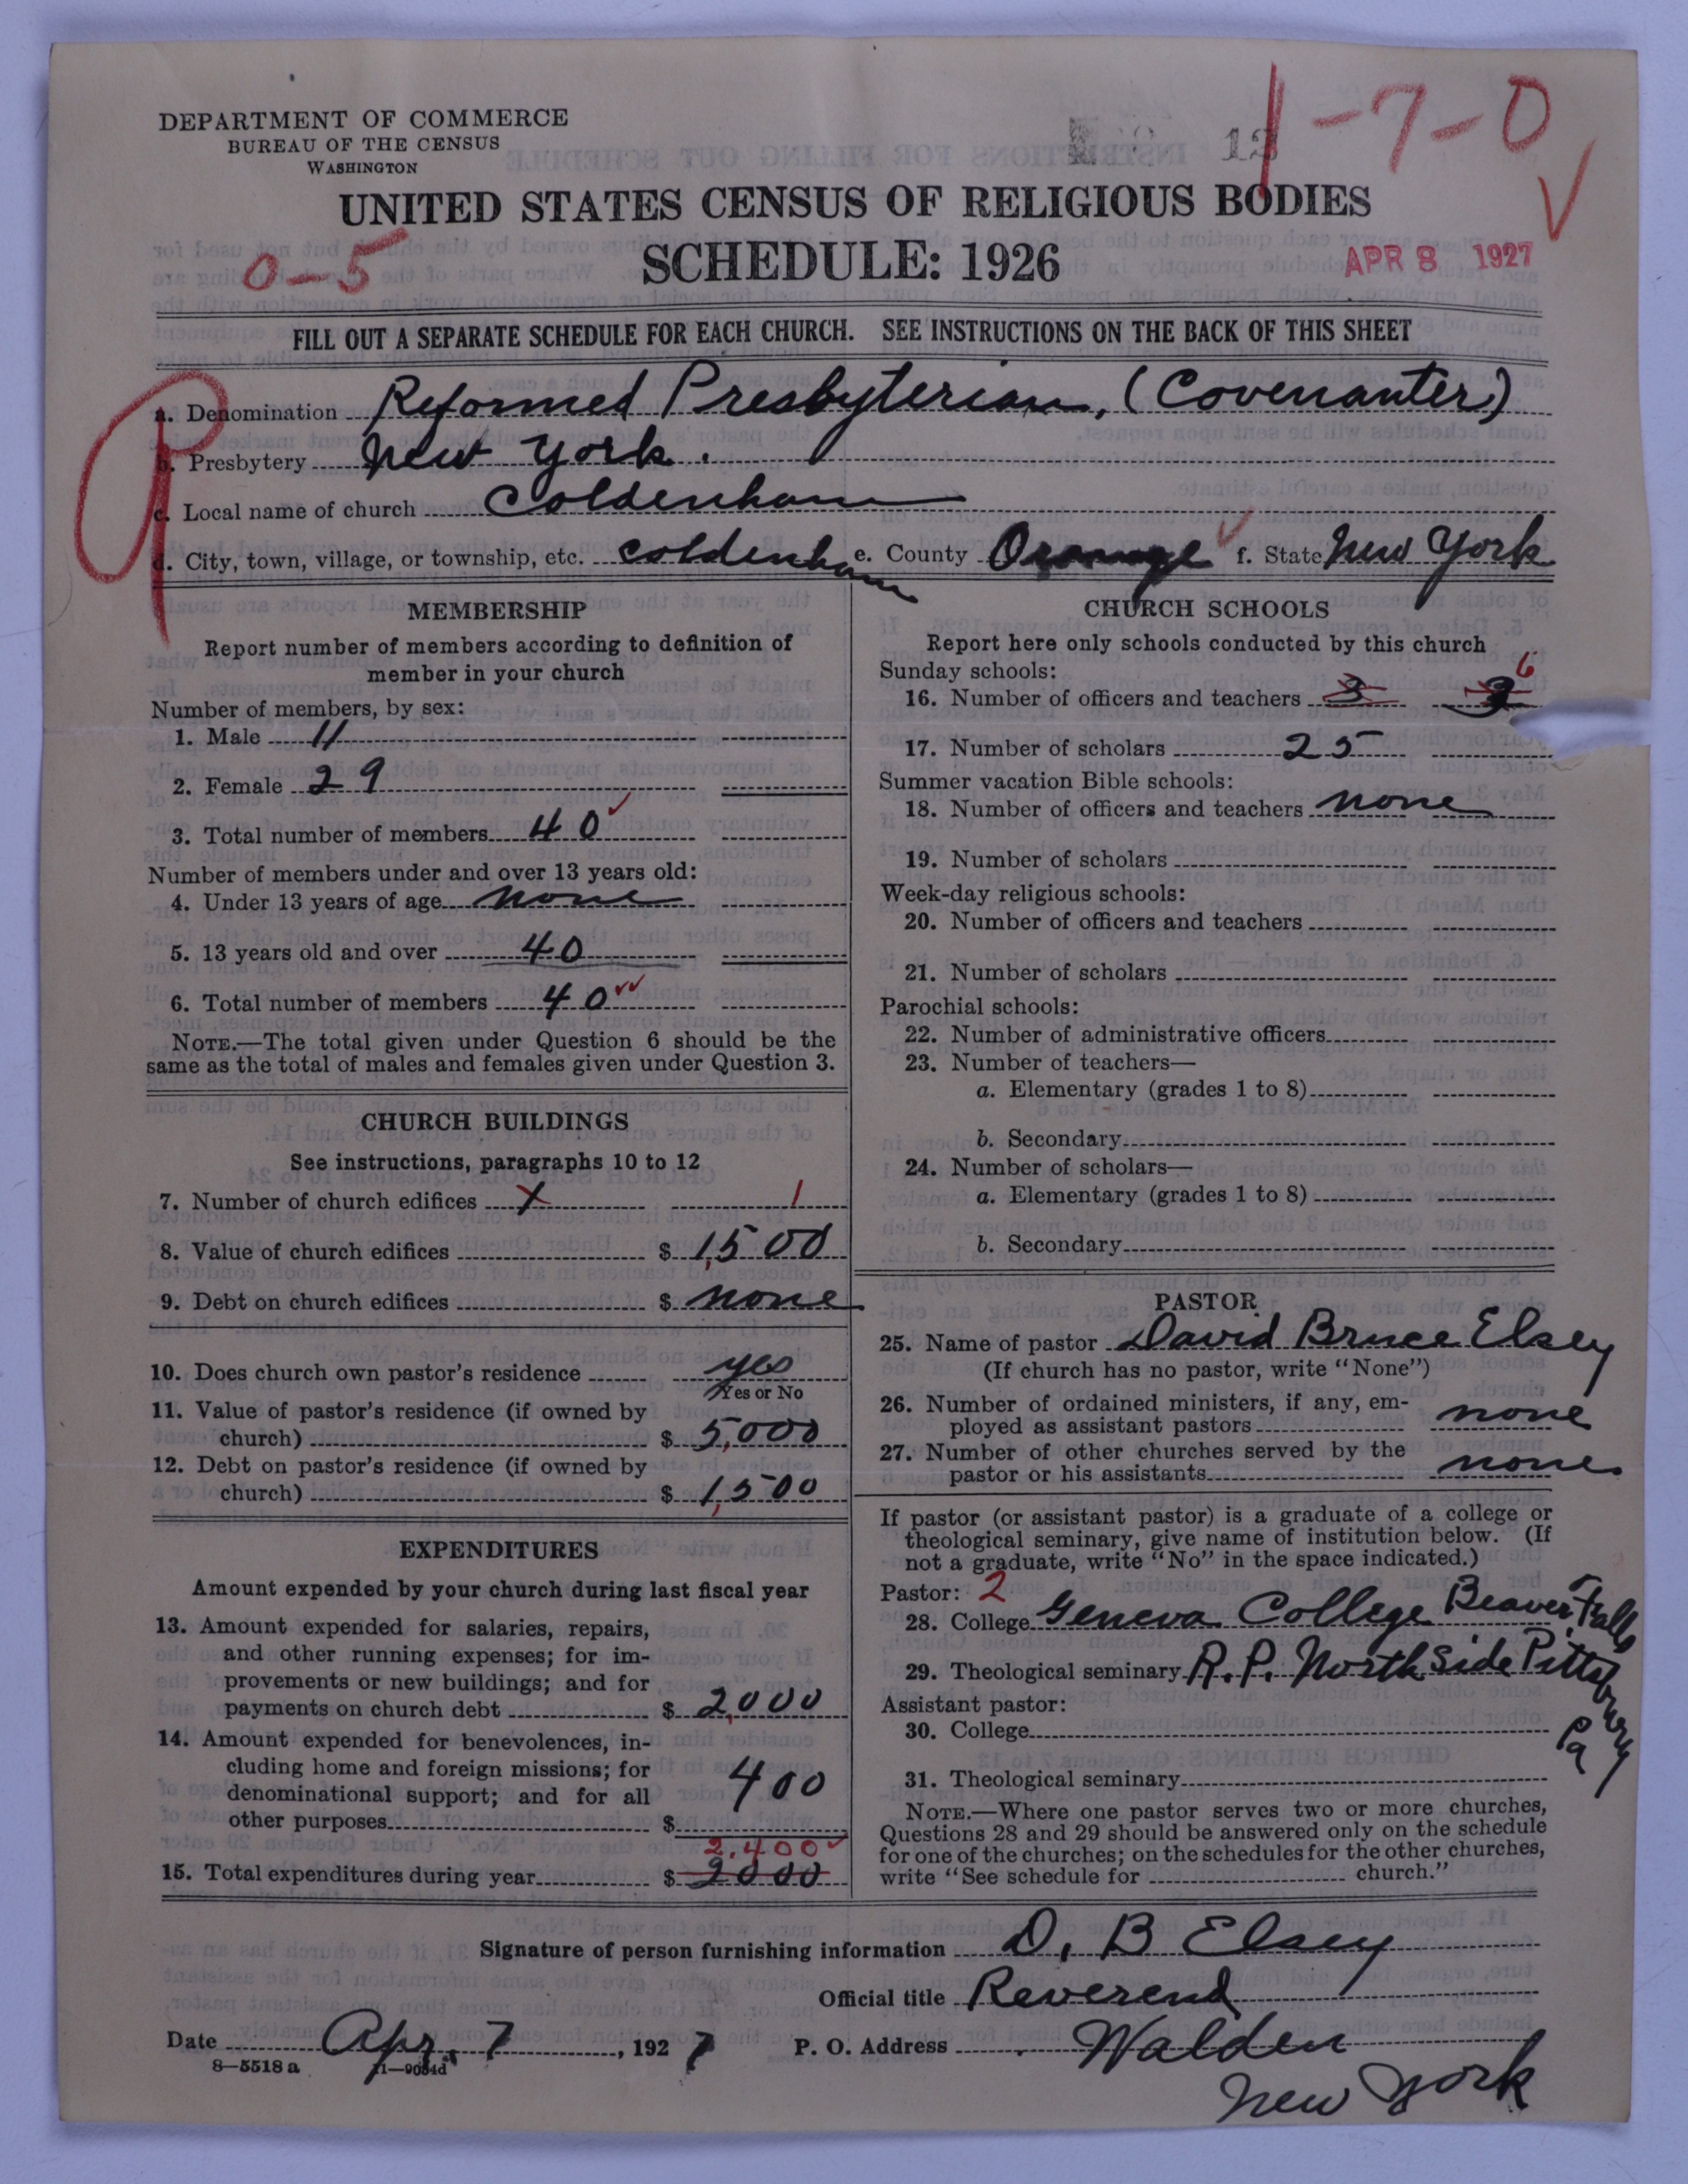 DEPARTMENT OF COMMERCE
BUREAU OF THE CENSUS
WASHINGTON
12
1-7-0
UNITED STATES CENSUS OF RELIGIOUS BODIES
SCHEDULE: 1926
0-5
APR 8 1927
FILL OUT A SEPARATE SCHEDULE FOR EACH CHURCH. SEE INSTRUCTIONS ON THE BACK OF THIS SHEET
a. Denomination Reformed Presbyterian, (Covenanter)
b. Presbytery New York.
c. Local name of church Coldenham
d. City, town, village, or township, etc. Coldenham e. County Orange f. State New York
MEMBERSHIP
Report number of members according to definition of
member in your church
Number of members, by sex:
1. Male 11
2. Female 29
3. Total number of members 40
Number of members under and over 13 years old:
4. Under 13 years of age none
5. 13 years old and over 40
6. Total number of members 40
NOTE.—The total given under Question 6 should be the
same as the total of males and females given under Question 3.
CHURCH BUILDINGS
See instructions, paragraphs 10 to 12
7. Number of church edifices 1
8. Value of church edifices $ 1,500
9. Debt on church edifices $ none
10. Does church own pastor's residence yes
Yes or No
11. Value of pastor's residence (if owned by
church) $ 5,000
12. Debt on pastor's residence (if owned by
church) $ 1,500
EXPENDITURES
Amount expended by your church during last fiscal year
13. Amount expended for salaries, repairs,
and other running expenses; for im-
provements or new buildings; and for
payments on church debt $ 2,000
14. Amount expended for benevolences, in-
cluding home and foreign missions; for
denominational support; and for all 400
other purposes $
2,400
15. Total expenditures during year $ 2000
CHURCH SCHOOLS
Report here only schools conducted by this church
Sunday schools: 6
16. Number of officers and teachers 3 3
17. Number of scholars 25
Summer vacation Bible schools:
18. Number of officers and teachers none
19. Number of scholars
Week-day religious schools:
20. Number of officers and teachers
21. Number of scholars
Parochial schools:
22. Number of administrative officers
23. Number of teachers—
a. Elementary (grades 1 to 8)
b. Secondary
24. Number of scholars—
a. Elementary (grades 1 to 8)
b. Secondary
PASTOR
25. Name of pastor David Bruce Elsey
(If church has no pastor, write "None")
26. Number of ordained ministers, if any, em-
ployed as assistant pastors none
27. Number of other churches served by the
pastor or his assistants none
If pastor (or assistant pastor) is a graduate of a college or
theological seminary, give name of institution below. (If
not a graduate, write "No" in the space indicated.)
Pastor: 2
28. College Geneva College Beaver Falls
29. Theological seminary R.P. North Side Pittsburg
Pa
Assistant pastor:
30. College
31. Theological seminary
NOTE.—Where one pastor serves two or more churches,
Questions 28 and 29 should be answered only on the schedule
for one of the churches; on the schedules for the other churches,
write "See schedule for church."
Signature of person furnishing information D. B Elsey
Official title Reverend
Date Apr. 7, 1927 P. O. Address Walden
New York
8—5518 a 11—9084d